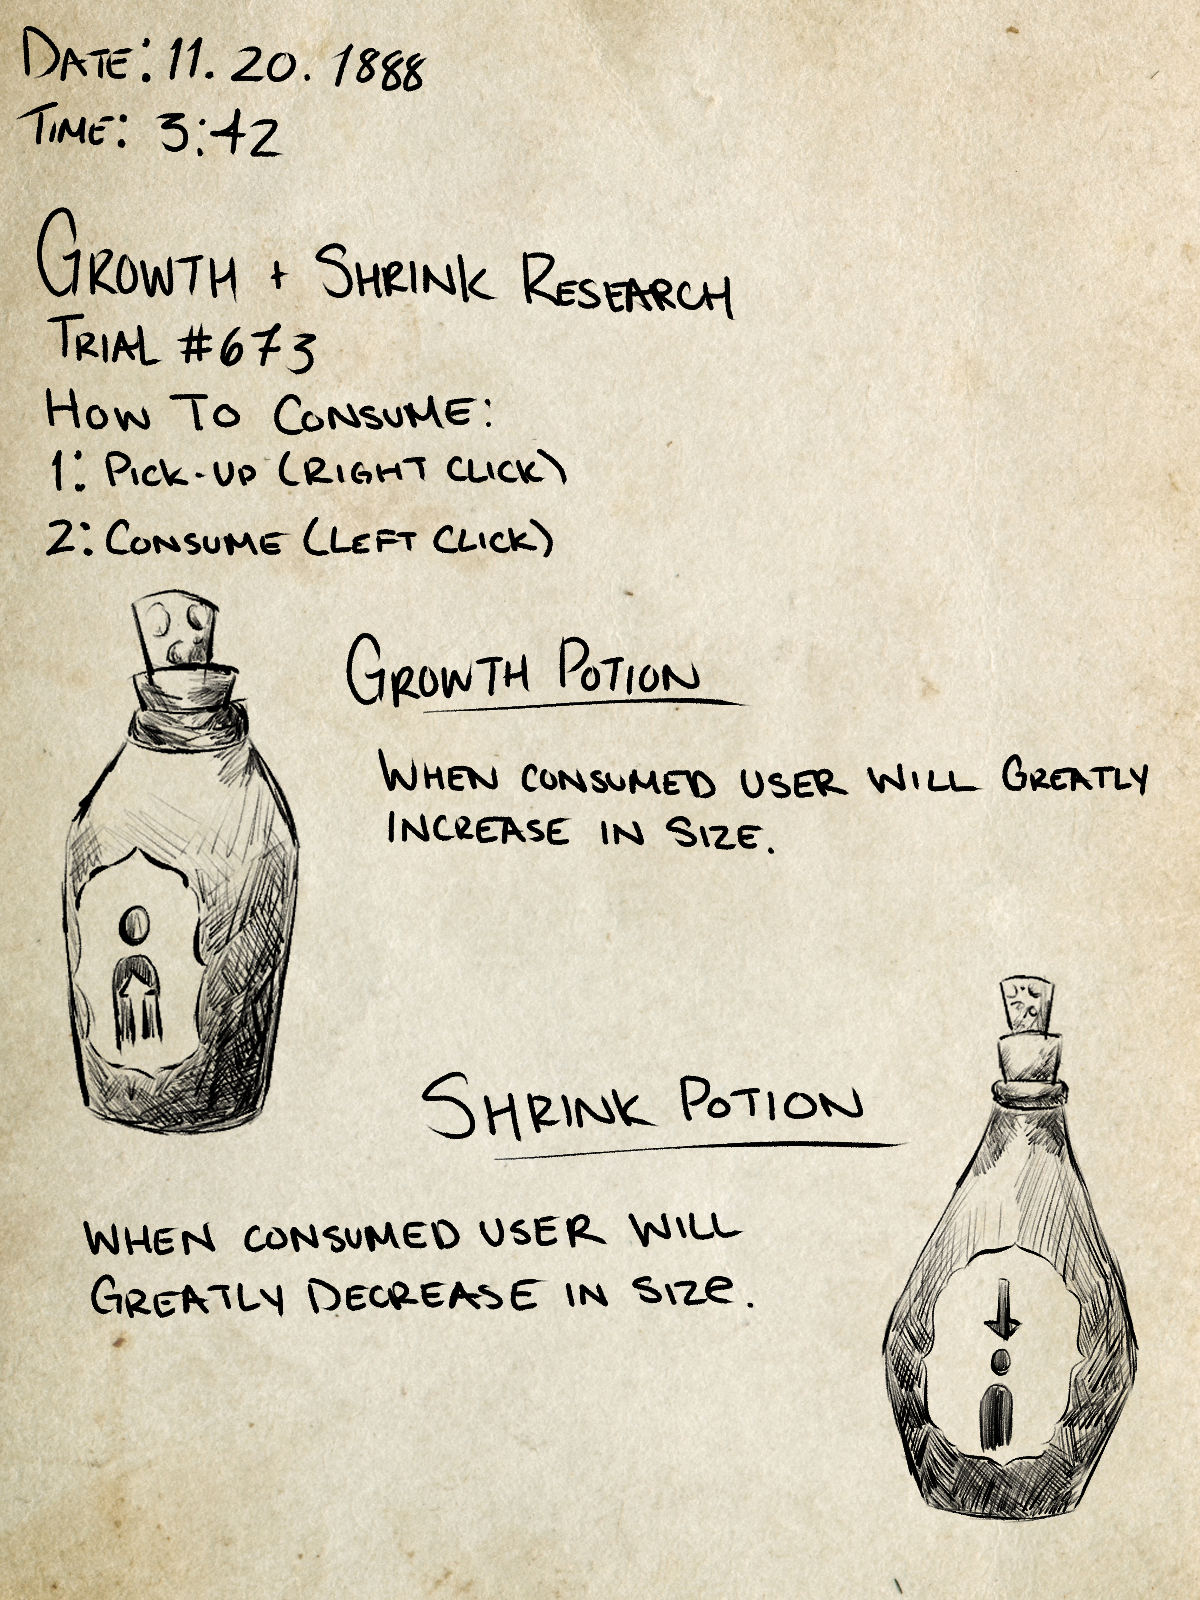 DATE: 11. 20. 1888
TIME: 3:42
GROWTH + SHRINK RESEARCH
TRIAL #673
HOW TO CONSUME:
1: PICK-UP (RIGHT CLICK)
2: CONSUME (LEFT CLICK)
GROWTH POTION
WHEN CONSUMED USER WILL GREATLY
INCREASE IN SIZE.
SHRINK POTION
WHEN CONSUMED USER WILL
GREATLY DECREASE IN SIZE.